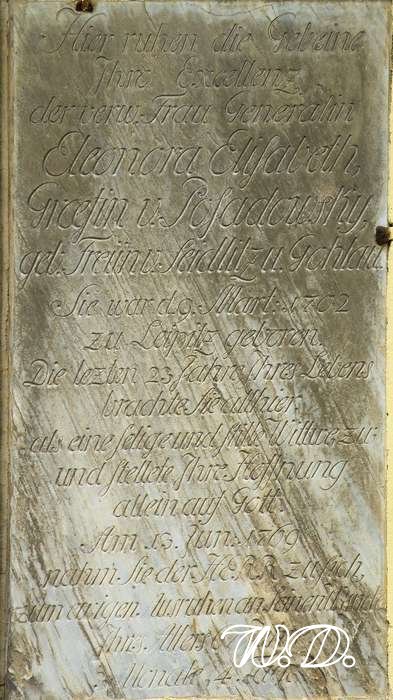 Hier ruhen die Gebeine
Ihro Excellenz
der verw. Frau Generalin
Eleonora Elisabeth,
Græfin v. Posadowsky,
geb. Freÿin v. Seidlitz u. Gohlau.
Sie war d. 9. Mart: 1702
zu Leipitz geboren.
Die lezten 23 Jahre Ihres Lebens
brachte Sie allhier
als eine selige und stille Wittwe zu
und stellete Ihre Hoffnung
allein auf Gott.
Am 13. Jun: 1769
nahm Sie der HERR zu sich,
zum ewigen Ausruhen an
Ihrs Alters
Monate, 4.
W.D.